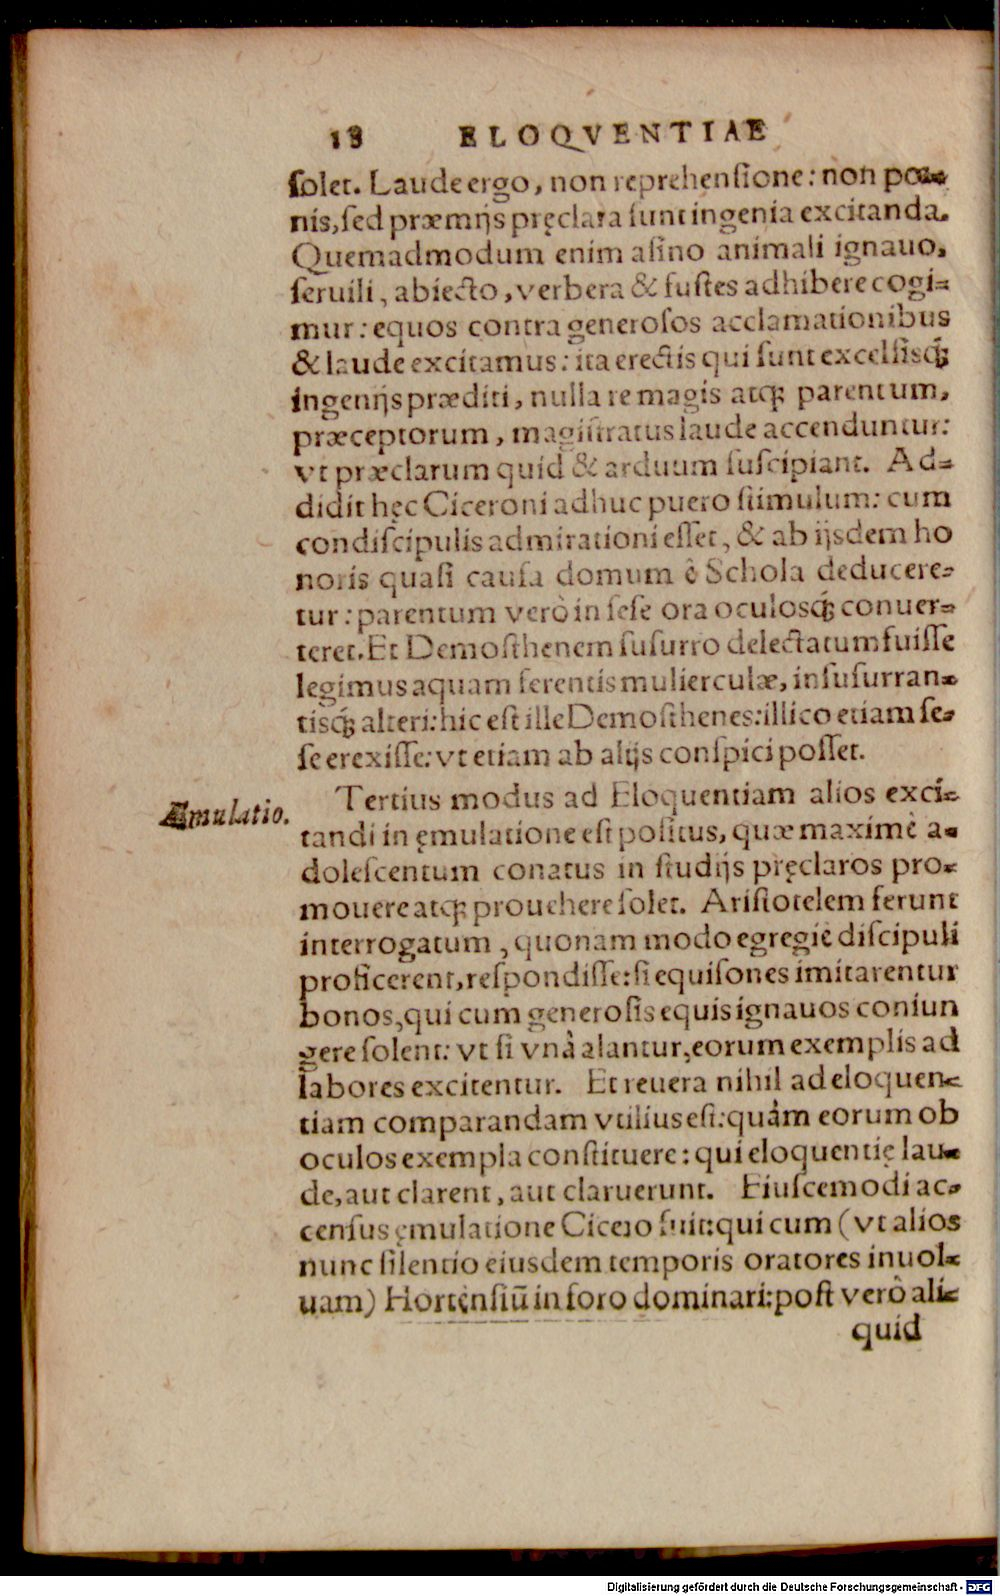 18 ELOQVENTIAE
ſolet. Laude ergo, non reprehenſione: non poe-
nis, ſed præmijs pręclara ſunt ingenia excitanda.
Quemadmodum enim aſino animali ignauo,
ſeruili, abiecto, verbera & fuſtes adhibere cogi-
mur: equos contra generoſos acclamationibus
& laude excitamus: ita erectis qui ſunt excelſisq́;
ingenijs præditi, nulla re magis atq; parentum,
præceptorum, magiſtratus laude accenduntur:
vt præclarum quid & arduum ſuſcipiant. Ad-
didit hęc Ciceroni adhuc puero ſtimulum: cum
condiſcipulis admirationi eſſet, & ab ijsdem ho
noris quaſi cauſa domum è Schola deducere-
tur: parentum verò in ſeſe ora oculosq́; conuer-
teret. Et Demoſthenem ſuſurro delectatum fuiſſe
legimus aquam ferentis mulierculæ, inſuſurran-
tisq́; alteri: hic eſt ille Demoſthenes: illico etiam ſe-
ſe erexiſſe: vt etiam ab alijs conſpici poſſet.
Æmulatio.
Tertius modus ad Eloquentiam alios exci-
tandi in ęmulatione eſt poſitus, quæ maximè a-
doleſcentum conatus in ſtudijs pręclaros pro-
mouere atq; prouehere ſolet. Ariſtotelem ferunt
interrogatum, quonam modo egregiè diſcipuli
proficerent, reſpondiſſe: ſi equiſones imitarentur
bonos, qui cum generoſis equis ignauos coniun
gere ſolent: vt ſi vnà alantur, eorum exemplis ad
labores excitentur. Et reuera nihil ad eloquen-
tiam comparandam vtilius eſt: quàm eorum ob
oculos exempla conſtituere: qui eloquentię lau-
de, aut clarent, aut claruerunt. Eiuſcemodi ac-
cenſus ęmulatione Cicero fuit: qui cum (vt alios
nunc ſilentio eiusdem temporis oratores inuol-
uam) Hortenſiū in foro dominari: poſt verò ali-
quid
Digitalisierung gefördert durch die Deutsche Forschungsgemeinschaft - DFG